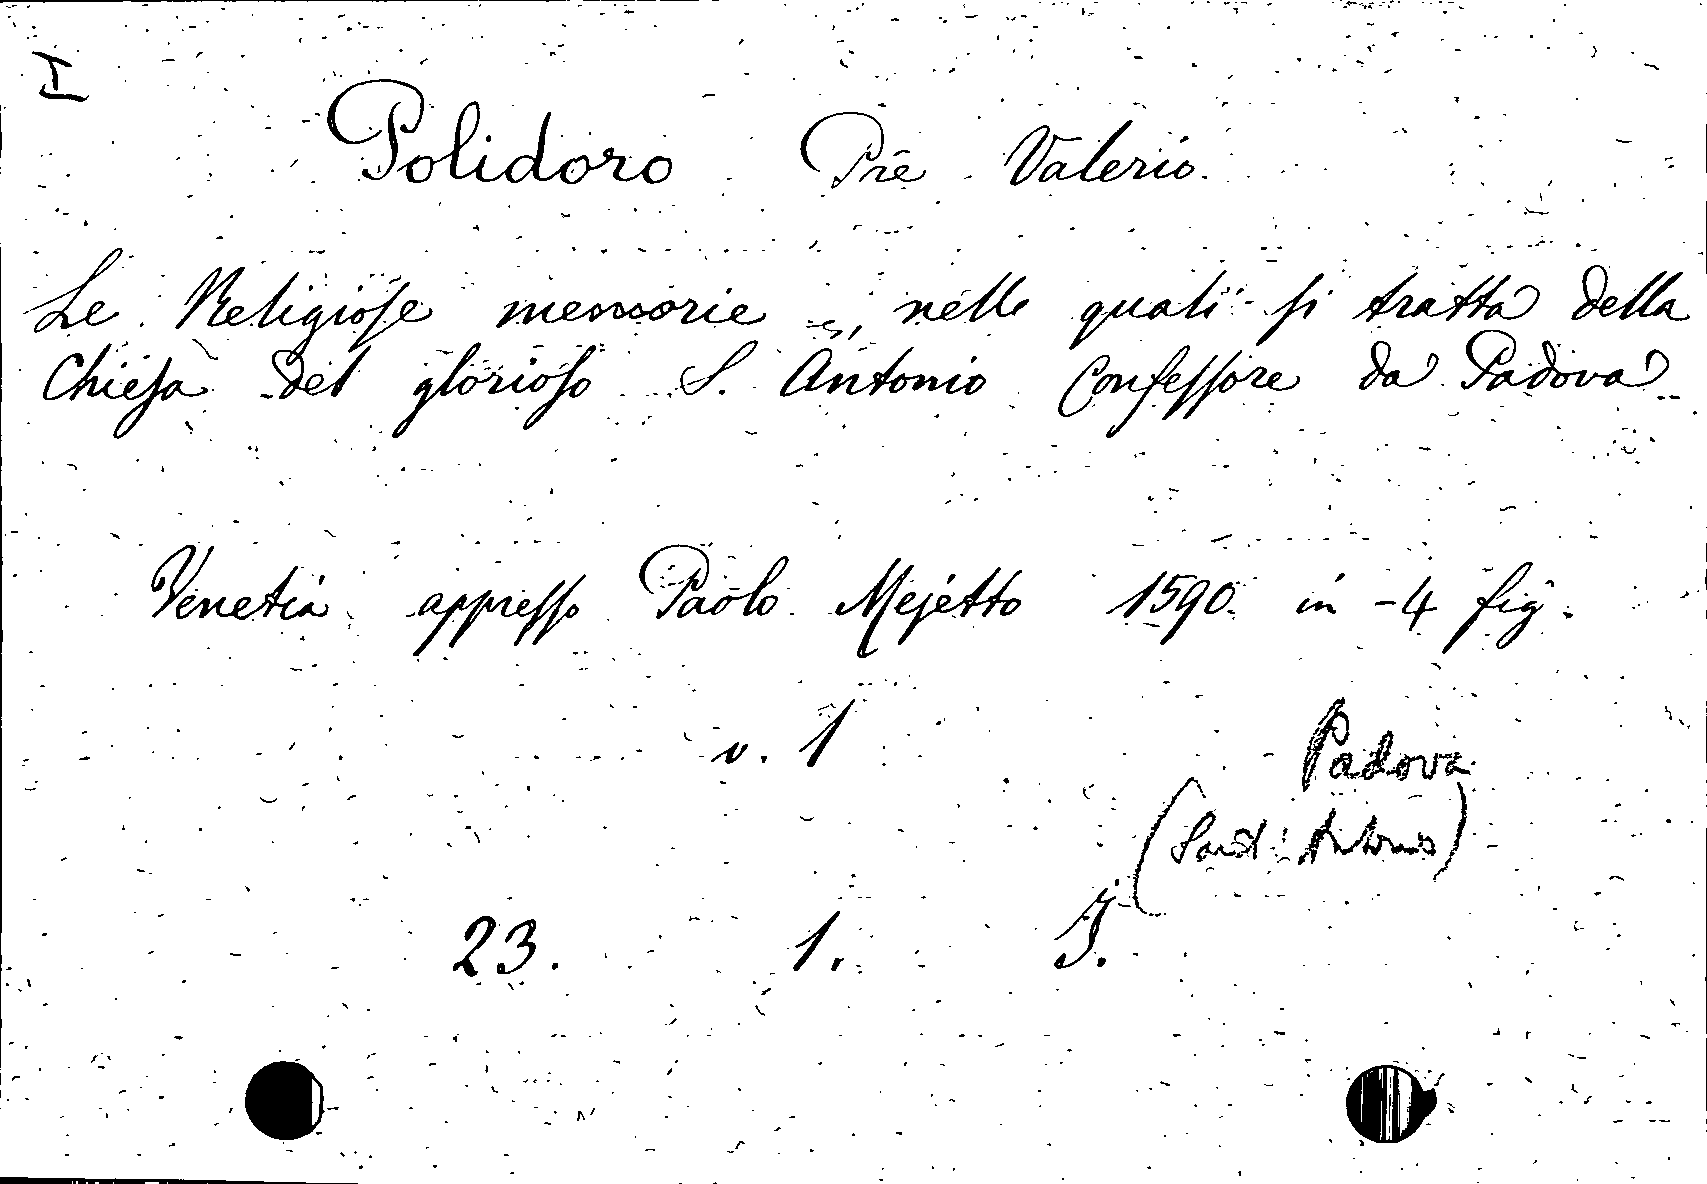 I
Polidoro Pre Valerio.
Le Religioſe memorie, nelle quali ſi tratta della
Chieſa del glorioſo S. Antonio Confeſſore da Padova
Venetia appreſſo Paolo Mejetto 1590. in -4 fig.
v. 1
Padova
(Sant' Antonio)
23. 1. J.